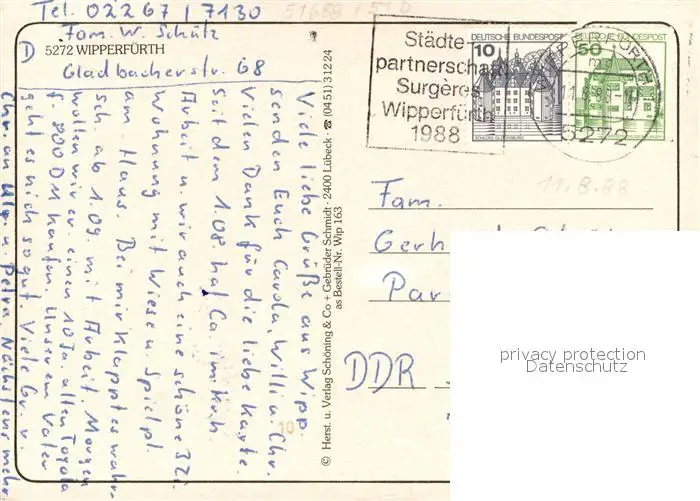 Tel. 02267 / 7130
Fam. W. Schütz
D 5272 WIPPERFÜRTH
Gladbacherstr. 68
Viele liebe Grüße aus Wipp.
senden Euch Carola, Willi u. Chr.
Vielen Dank für die liebe Karte.
Seit dem 1.08. hat Ca. im Krkh
Arbeit u. wir auch eine schöne 3Zi.
Wohnung mit Wiese u. Spielpl.
am Haus. Bei mir klappt es wahr-
sch. ab 1.09. mit Arbeit. Morgen
wollen wir er einen 10 Ja. alten Toyota
f. 800 DM kaufen. Unserem Vater
geht es nicht so gut. Viele Gr. v.
Chr. an Ulr. u. Petra. Nächstens mehr
© Herst. u. Verlag Schöning & Co + Gebrüder Schmidt · 2400 Lübeck · ☎ (0451) 31224
as Bestell-Nr. Wip 163
10
Städte-
partnerschaft
Surgères
Wipperfürth
1988
10 DEUTSCHE BUNDESPOST
SCHLOSS GLÜCKSBURG
50 DEUTSCHE BUNDESPOST
5272
11.8.88
Fam.
Gerh
Par
DDR
privacy protection
Datenschutz